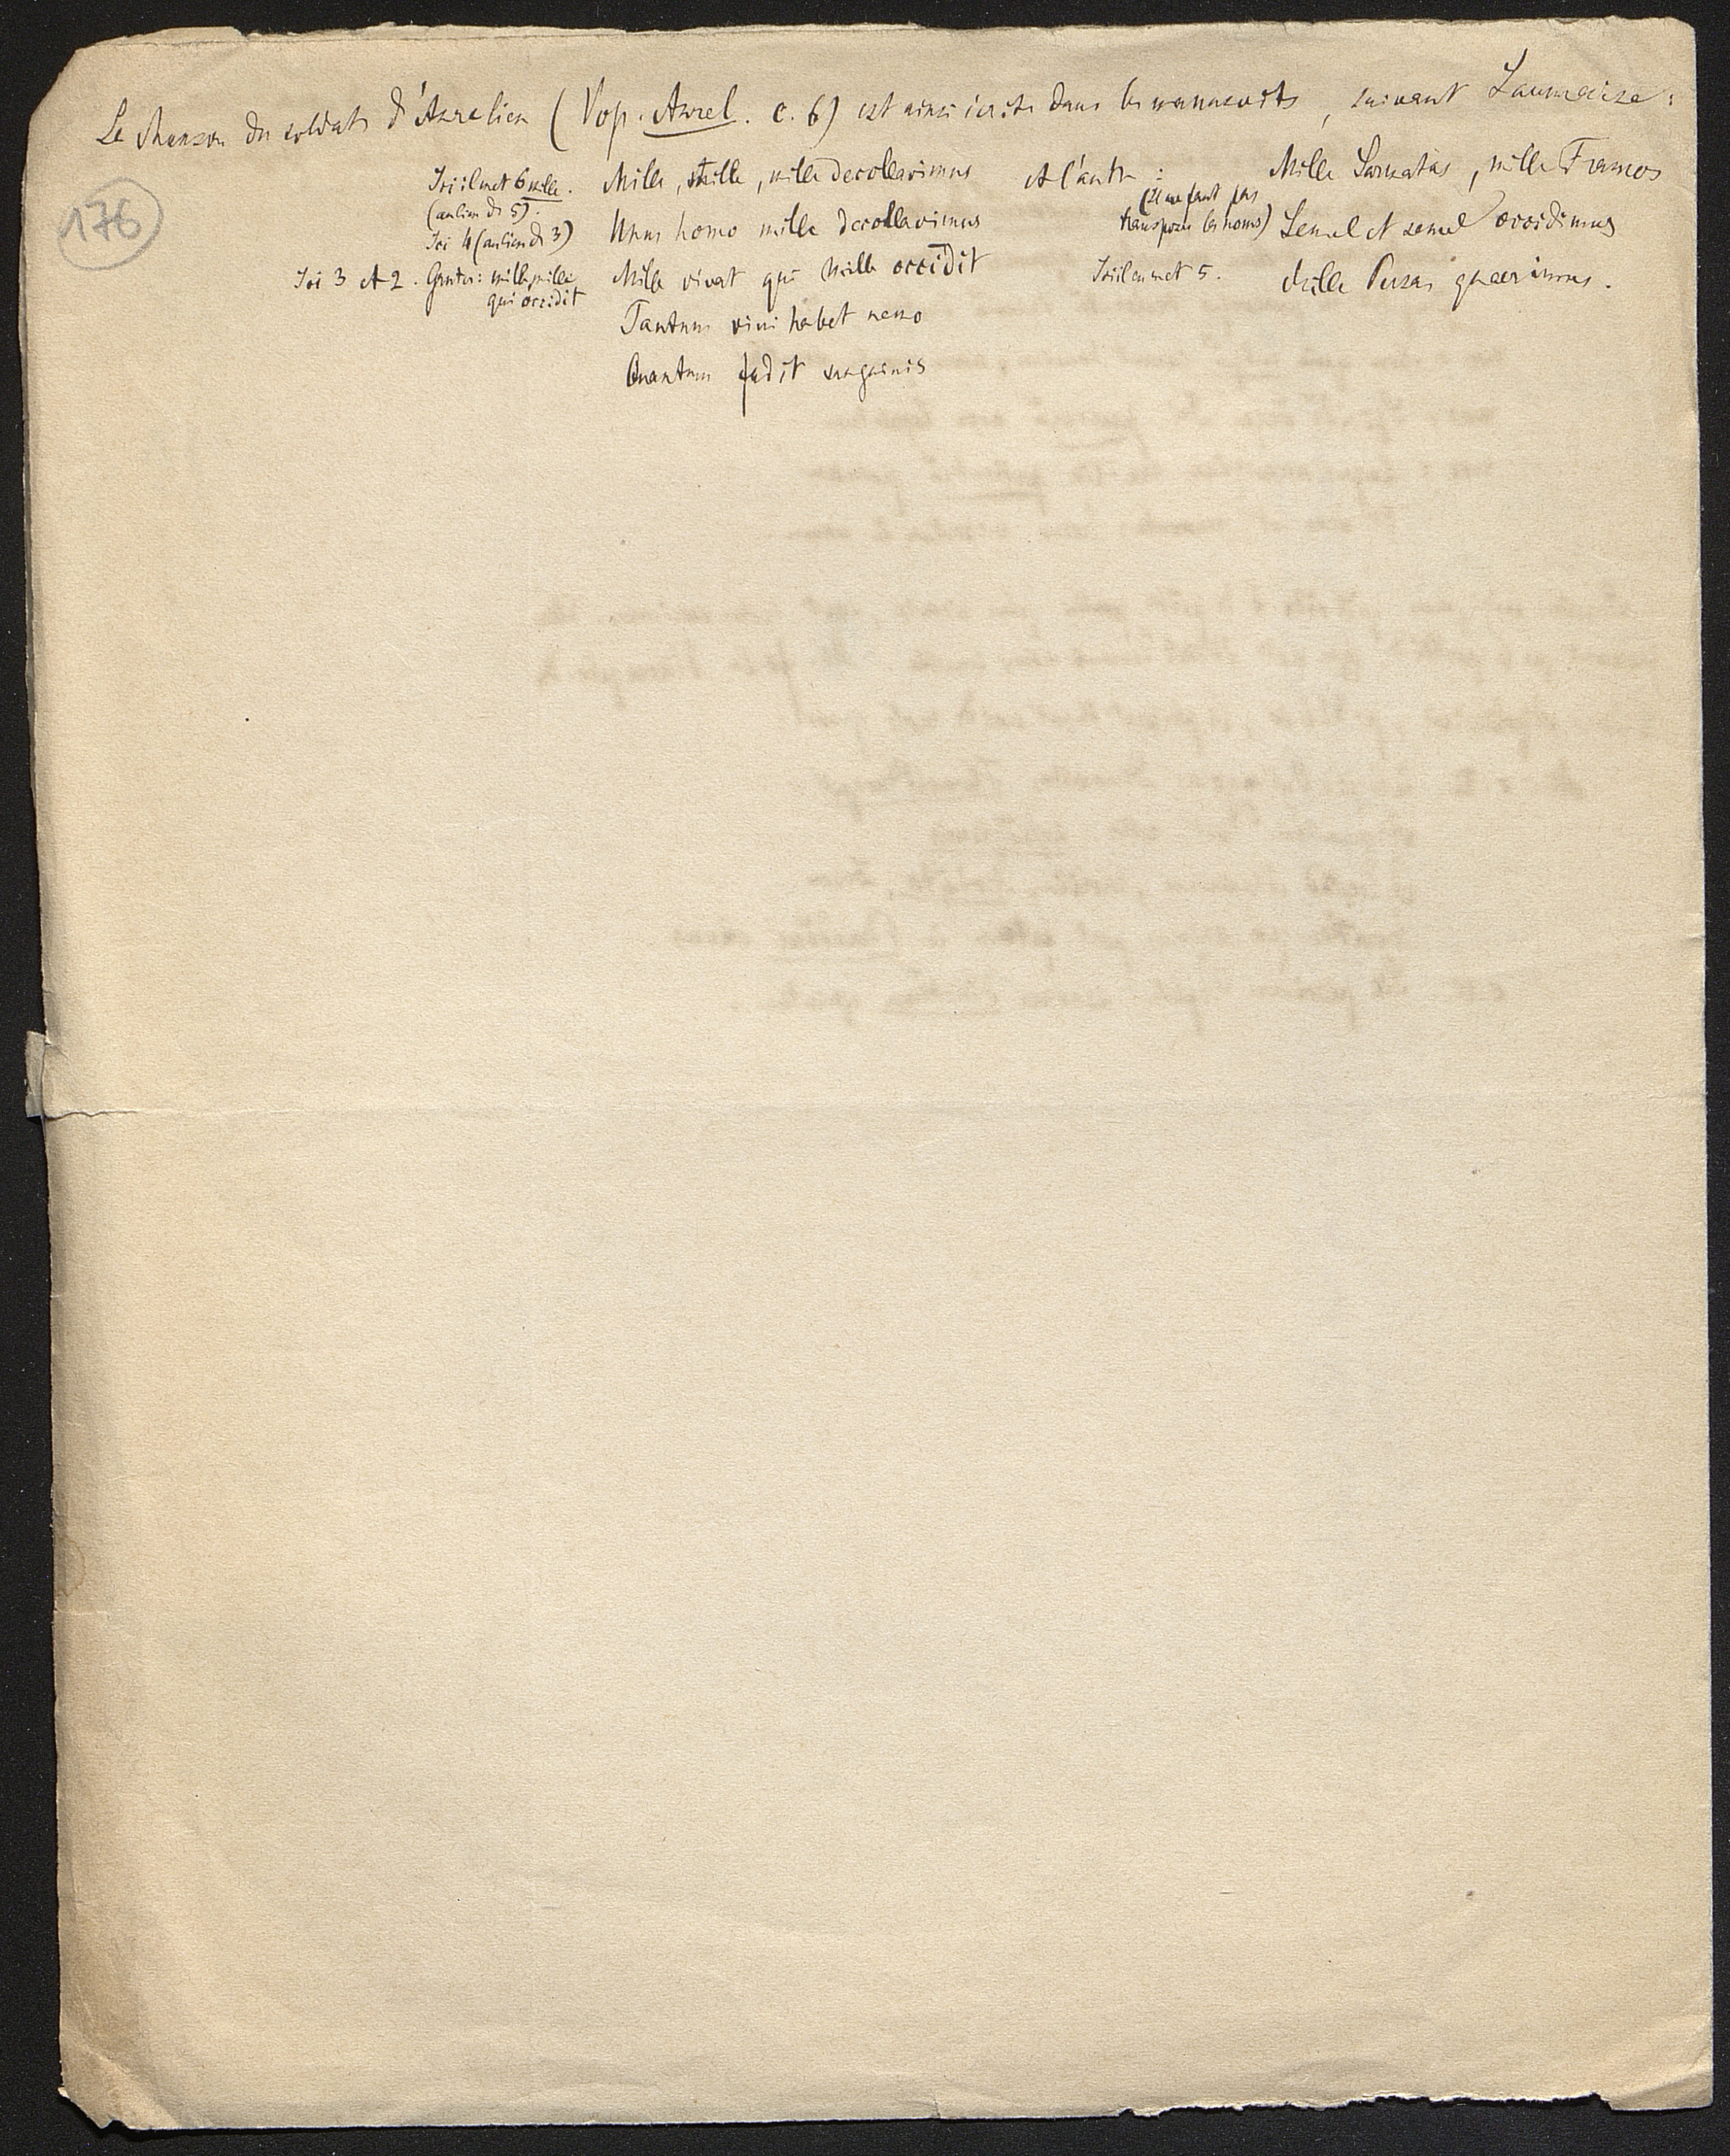 La chanson des soldats d'Aurelien (Vop. Aurel. c. 6) est ainsi écrite dans les manuscrits, suivant Saumaise :
176
Ici il met 6 mille. (au lieu de 5). Mille, mille, mille decollavimus
Ici 4 (au lieu de 3) Unus homo mille decollavimus
Ici 3 et 2. Gruter: mille, mille qui occidit Mille vivat qui mille occidit
Tantum vini habet nemo
Quantum fudit sanguinis
Et l'autre : Mille Sarmatas, mille Francos
(Il ne faut pas transposer les noms) Semel et semel occidimus
Ici il en met 5. Mille Persas quaerimus.